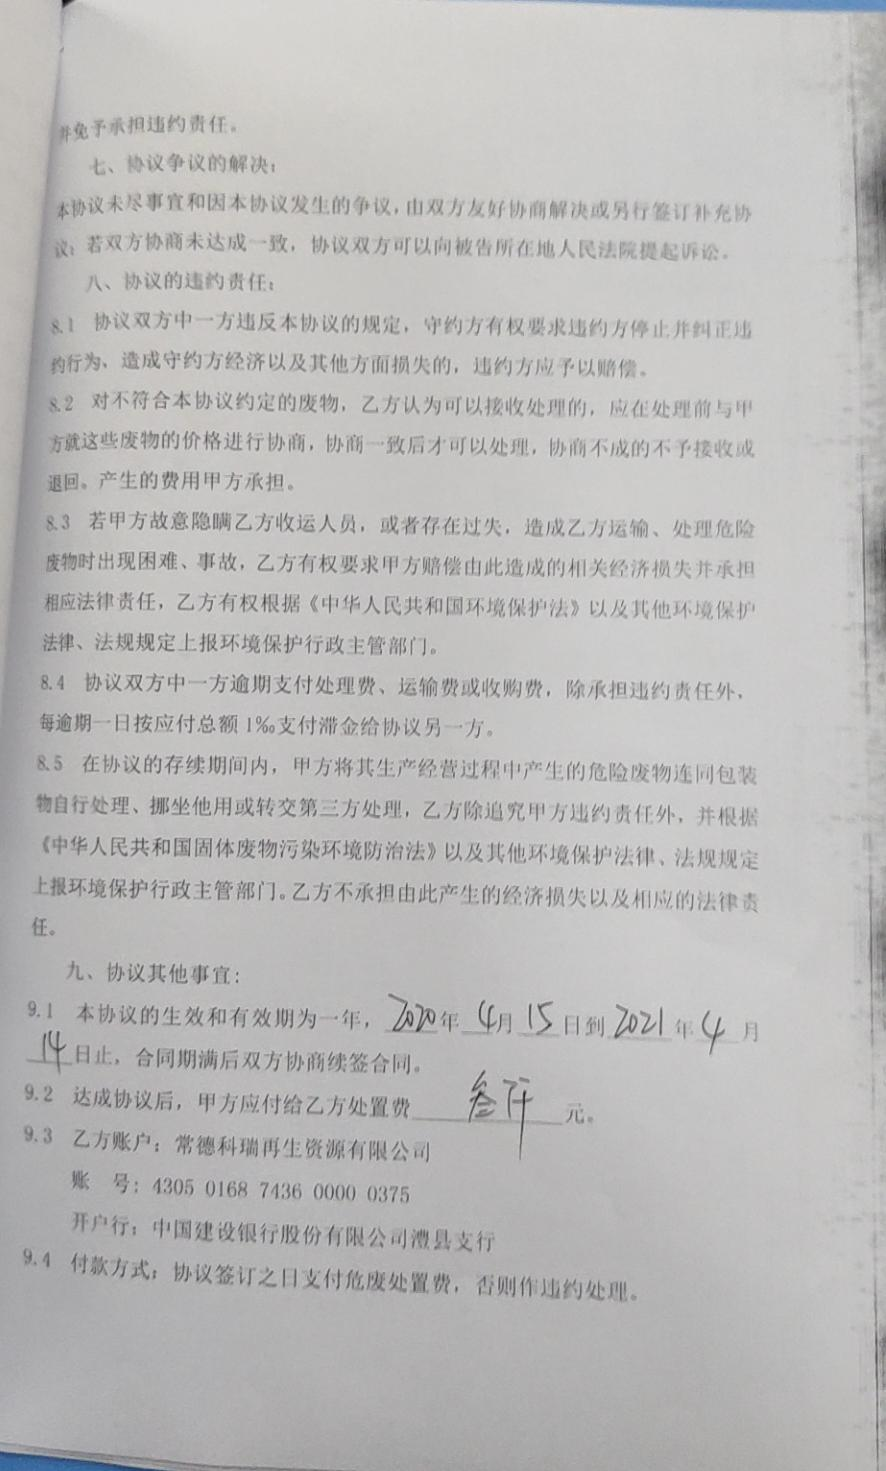 并免予承担违约责任。
七、协议争议的解决：
本协议未尽事宜和因本协议发生的争议，由双方友好协商解决或另行签订补充协
议；若双方协商未达成一致，协议双方可以向被告所在地人民法院提起诉讼。
八、协议的违约责任：
8.1 协议双方中一方违反本协议的规定，守约方有权要求违约方停止并纠正违
约行为、造成守约方经济以及其他方面损失的，违约方应予以赔偿。
8.2 对不符合本协议约定的废物，乙方认为可以接收处理的，应在处理前与甲
方就这些废物的价格进行协商，协商一致后才可以处理，协商不成的不予接收或
退回。产生的费用甲方承担。
8.3 若甲方故意隐瞒乙方收运人员，或者存在过失，造成乙方运输、处理危险
废物时出现困难、事故，乙方有权要求甲方赔偿由此造成的相关经济损失并承担
相应法律责任，乙方有权根据《中华人民共和国环境保护法》以及其他环境保护
法律、法规规定上报环境保护行政主管部门。
8.4 协议双方中一方逾期支付处理费、运输费或收购费，除承担违约责任外，
每逾期一日按应付总额1‰支付滞金给协议另一方。
8.5 在协议的存续期间内，甲方将其生产经营过程中产生的危险废物连同包装
物自行处理、挪坐他用或转交第三方处理，乙方除追究甲方违约责任外，并根据
《中华人民共和国固体废物污染环境防治法》以及其他环境保护法律、法规规定
上报环境保护行政主管部门。乙方不承担由此产生的经济损失以及相应的法律责
任。
九、协议其他事宜：
9.1 本协议的生效和有效期为一年，2020年4月15日到2021年4月
14日止，合同期满后双方协商续签合同。
9.2 达成协议后，甲方应付给乙方处置费叁仟元。
9.3 乙方账户：常德科瑞再生资源有限公司
账 号：4305 0168 7436 0000 0375
开户行：中国建设银行股份有限公司澧县支行
9.4 付款方式：协议签订之日支付危废处置费，否则作违约处理。